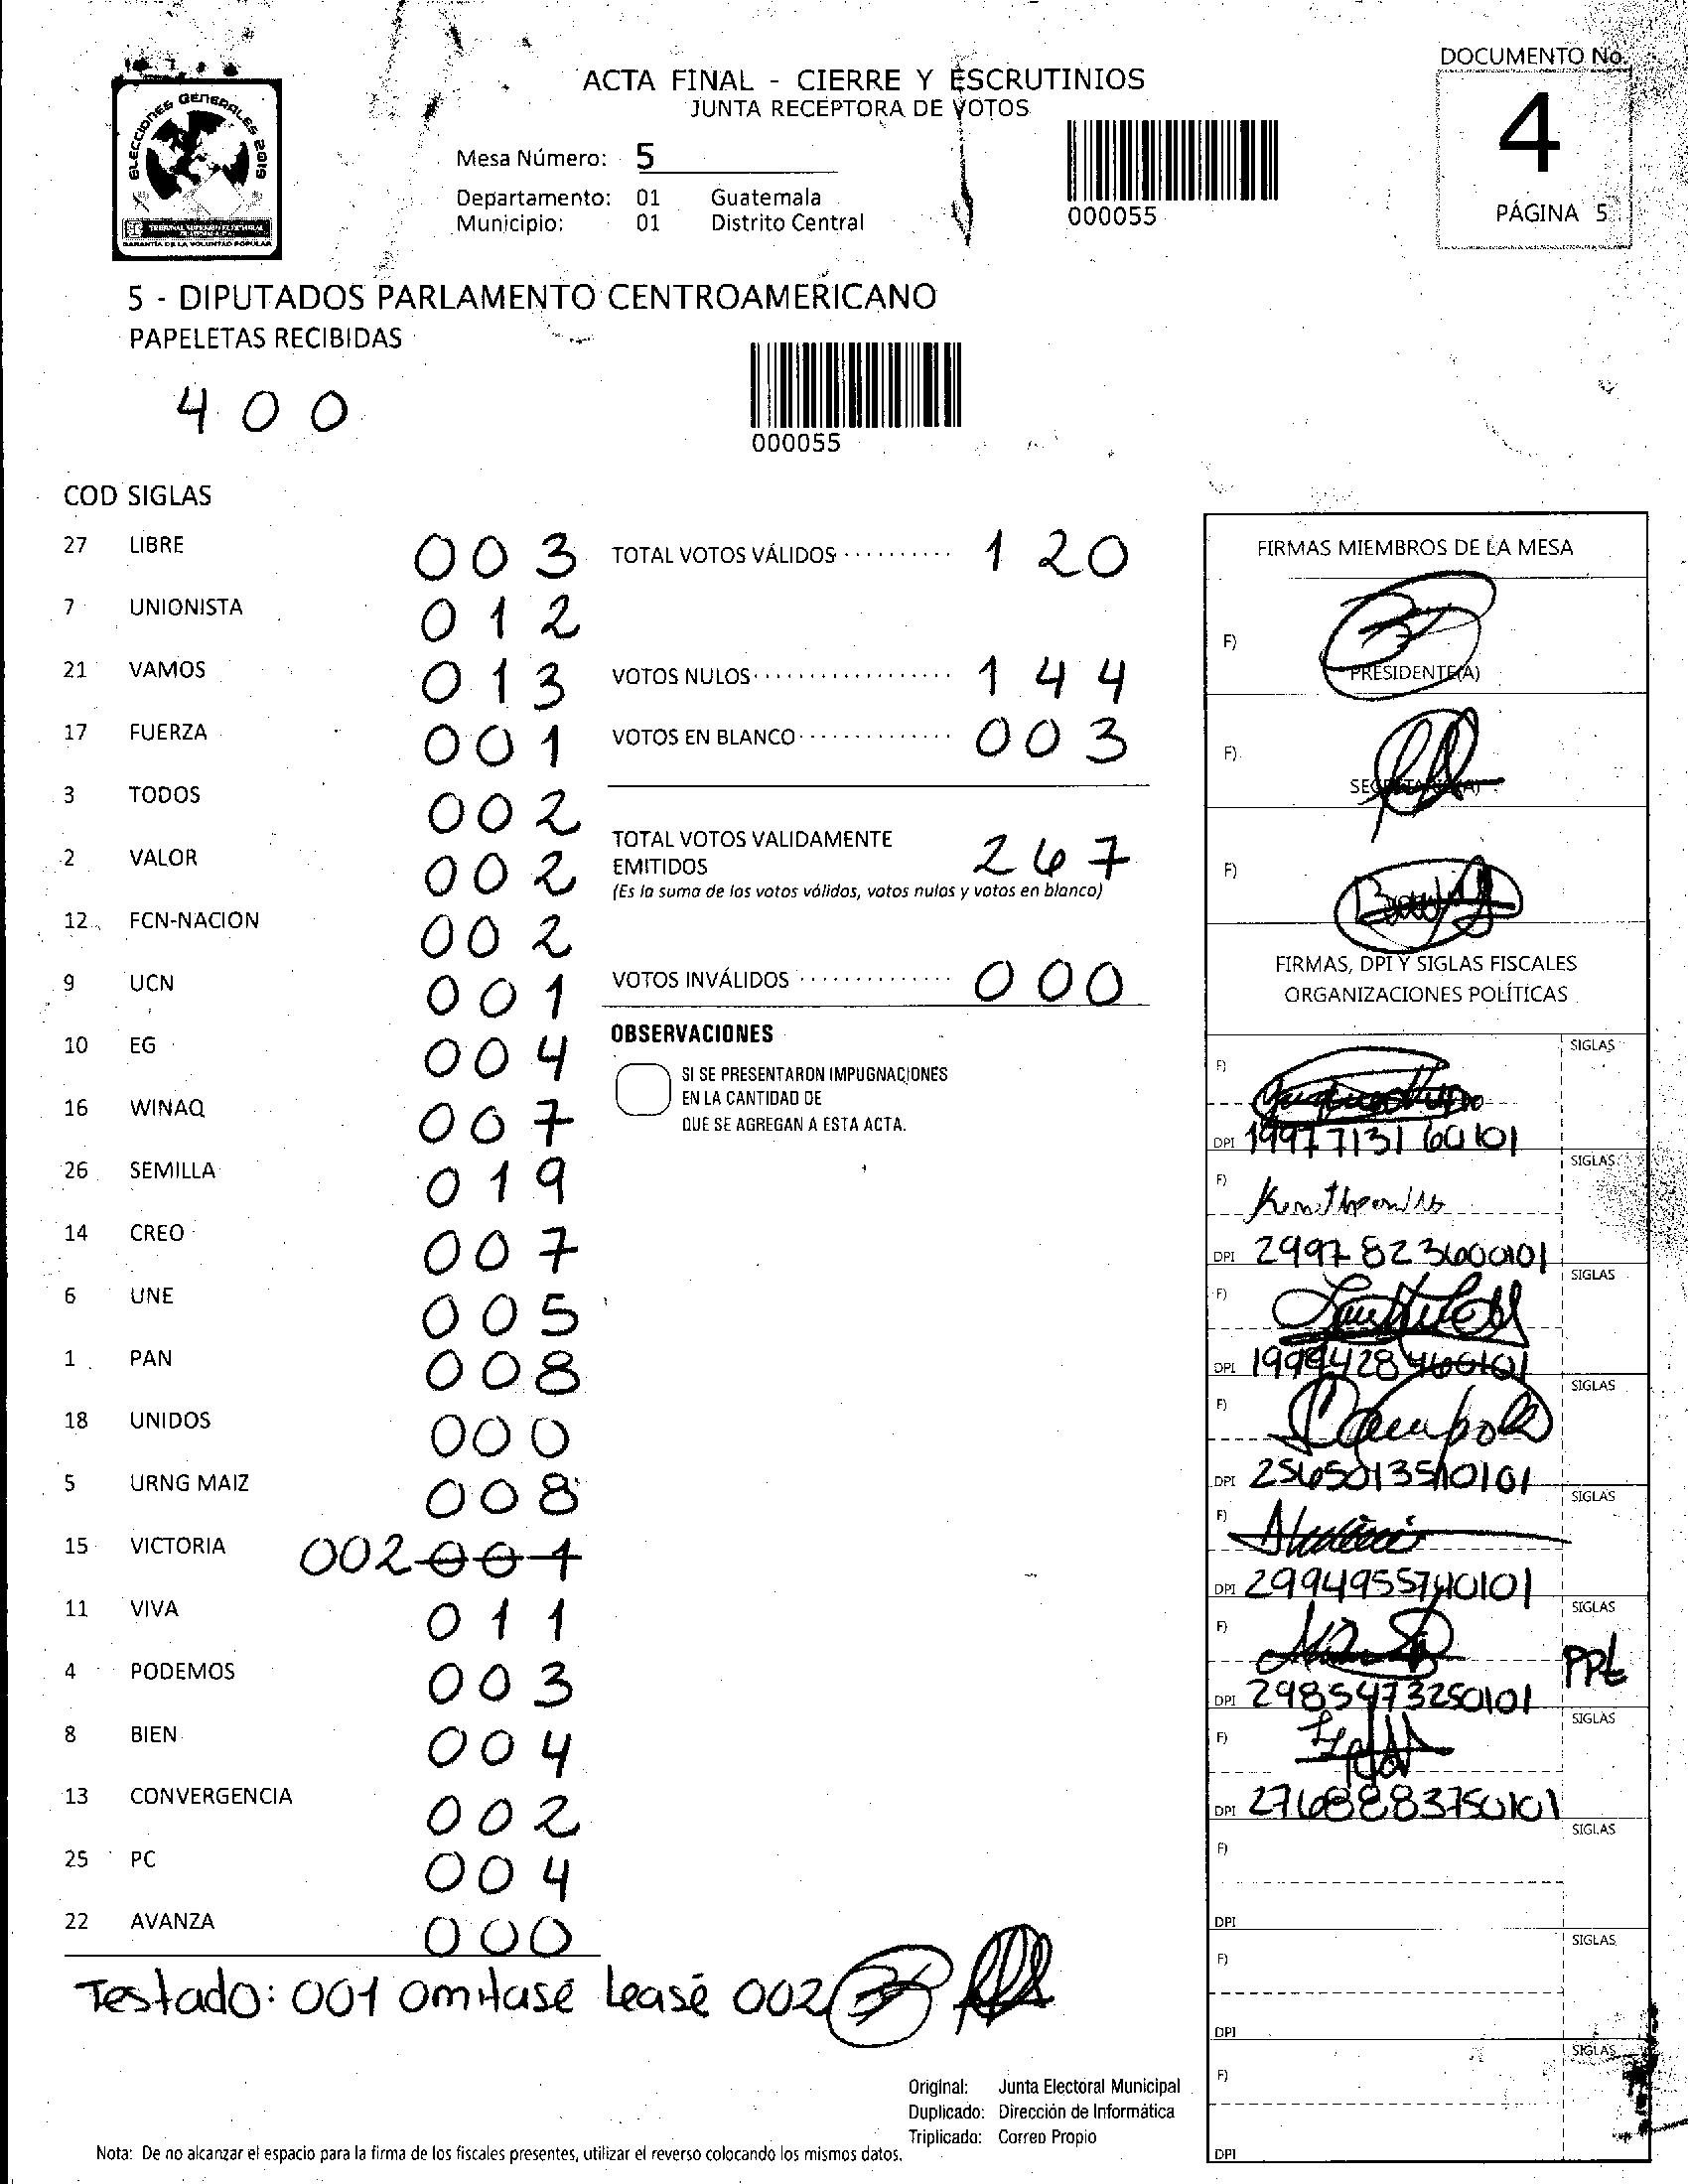 DOCUMENTO No.
4
PÁGINA 5
ACTA FINAL - CIERRE Y ESCRUTINIOS
JUNTA RECEPTORA DE VOTOS
ELECCIONES GENERALES 2019
TRIBUNAL SUPREMO ELECTORAL
GARANTÍA DE LA VOLUNTAD POPULAR
Mesa Número: 5
Departamento: 01 Guatemala
Municipio: 01 Distrito Central
000055
5 - DIPUTADOS PARLAMENTO CENTROAMERICANO
PAPELETAS RECIBIDAS
400
000055
COD SIGLAS
27 LIBRE 003
7 UNIONISTA 012
21 VAMOS 013
17 FUERZA 001
3 TODOS 002
2 VALOR 002
12 FCN-NACION 002
9 UCN 001
10 EG 004
16 WINAQ 007
26 SEMILLA 019
14 CREO 007
6 UNE 005
1 PAN 008
18 UNIDOS 000
5 URNG MAIZ 008
15 VICTORIA 002 001
11 VIVA 011
4 PODEMOS 003
8 BIEN 004
13 CONVERGENCIA 002
25 PC 004
22 AVANZA 000
Testado: 001 omitase Lease 002
TOTAL VOTOS VÁLIDOS 120
VOTOS NULOS 144
VOTOS EN BLANCO 003
TOTAL VOTOS VALIDAMENTE
EMITIDOS 267
(Es la suma de los votos válidos, votos nulos y votos en blanco)
VOTOS INVÁLIDOS 000
OBSERVACIONES
SI SE PRESENTARON IMPUGNACIONES
EN LA CANTIDAD DE
QUE SE AGREGAN A ESTA ACTA.
FIRMAS MIEMBROS DE LA MESA
F)
PRESIDENTE(A)
F)
SECRETARIO(A)
F)
FIRMAS, DPI Y SIGLAS FISCALES
ORGANIZACIONES POLÍTICAS
F) SIGLAS
DPI 1997713160101
F) SIGLAS
DPI 2997823600101
F) SIGLAS
DPI 1999428460101
F) SIGLAS
DPI 2565013510101
F) SIGLAS
DPI 2994955740101
F) SIGLAS
PPT
DPI 2985473250101
F) SIGLAS
DPI 2768883750101
F) SIGLAS
DPI
F) SIGLAS
DPI
F) SIGLAS
DPI
Original: Junta Electoral Municipal
Duplicado: Dirección de Informática
Triplicado: Correo Propio
Nota: De no alcanzar el espacio para la firma de los fiscales presentes, utilizar el reverso colocando los mismos datos.